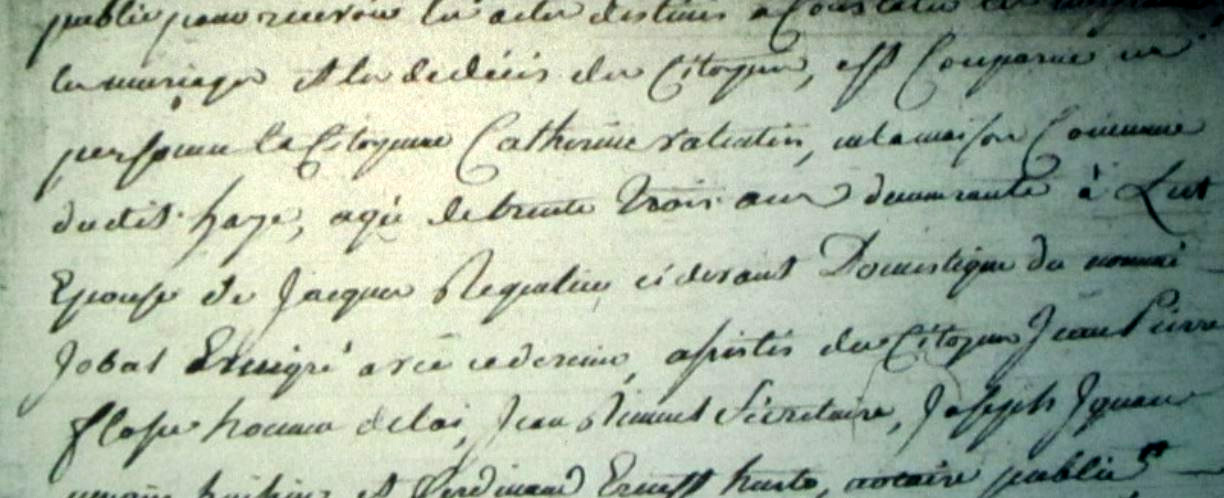 public pour recevoir les actes destinés a Constater les
les mariages et les dedécès des Citoyens, est Comparue en
personne la Citoyenne Catherine valentin, en la maison Commune
dudit haye, agée de trente trois ans demeurante à Lut
Epouse de Jacques cidevant Domestique du nommé
Jobal Emigré avec ce dernier, assistée des Citoyens Jean Pierre
homme de loi, Jean Secretaire, Joseph Ignace
et Ferdinand Ernest notaire public